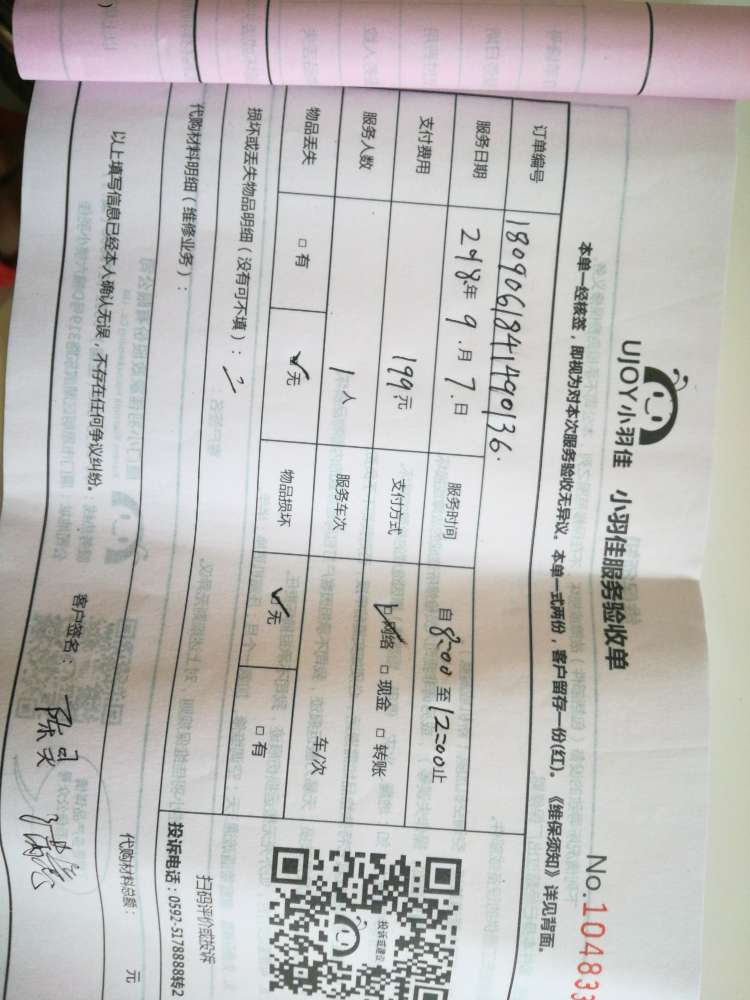 UJOY小羽佳 小羽佳服务验收单
No.104833
本单一经核签，即视为对本次服务验收无异议。本单一式两份，客户留存一份(红)。《维保须知》详见背面。
订单编号 1809061841490136
服务日期 2018年9月7日 服务时间 自8:00至12:00止
支付费用 199元 支付方式 ☑网络 □现金 □转账
服务人数 1人 服务车次 车/次
物品丢失 □有 ☑无 物品损坏 ☑无 □有
损坏或丢失物品明细（没有可不填）：
代购材料明细（维修业务）：
代购材料总额： 元
投诉或建议
扫码评价或投诉
投诉电话：0592-5178888转2
以上填写信息已经本人确认无误，不存在任何争议纠纷。 客户签名：